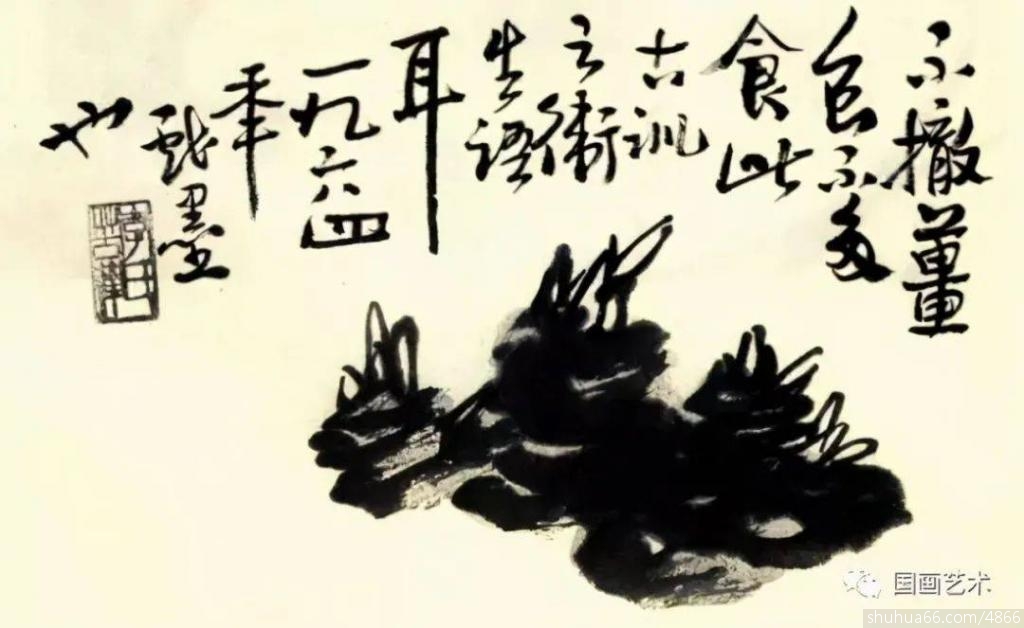 不撤薑
食不多
食此
古訓
之衛
生語
耳
一九六四
年
戲墨
也
国画艺术
shuhua66.com/4866